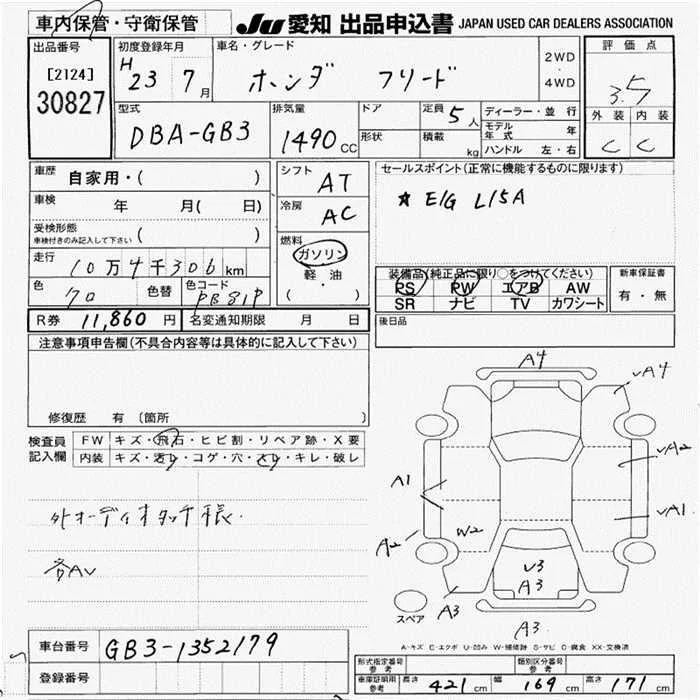 車内保管・守衛保管
JU 愛知 出品申込書 JAPAN USED CAR DEALERS ASSOCIATION
出品番号
[2124]
30827
初度登録年月
H 23 7月
車名・グレード
ホンダ フリード
2WD
・
4WD
評価点
3.5
外装 内装
C C
型式
DBA-GB3
排気量
1490 CC
ドア
形状
定員 5人
積載 kg
ディーラー・並行
モデル年式 年
ハンドル 左・右
車歴
自家用・( )
車検 年 月( 日)
受検形態
車検付きのみ記入して下さい ( )
走行
10万4千306km
色 色替 色コード
クロ PB81P
シフト AT
冷房 AC
燃料
ガソリン
・
軽・油
( )
セールスポイント(正常に機能するものに限ります)
☆ E/G L15A
装備品(純正品に限り○をつけてください)
PS PW エアB AW
SR ナビ TV カワシート
新車保証書
有・無
R券 11,860円 名変通知期限 月 日
後日品
注意事項申告欄(不具合内容等は具体的に記入して下さい)
修復歴 有(箇所 )
検査員
記入欄
FW キズ・飛石・ヒビ割・リペア跡・X要
内装 キズ・汚レ・コゲ・穴・スレ・キレ・破レ
外オーディオタッチ
各AU
A4
UA4
UA2
UA1
A1
A2
W2
U3
A3
A3
A3
スペア
A-キズ E-エクボ U-凹み W-補修跡 S-サビ C-腐食 XX-交換済
車台番号 GB3-1352179
登録番号
形式指定番号
参考
類別区分番号
参考
車庫証明用
参考
長さ 421cm 幅 169cm 高さ 171cm